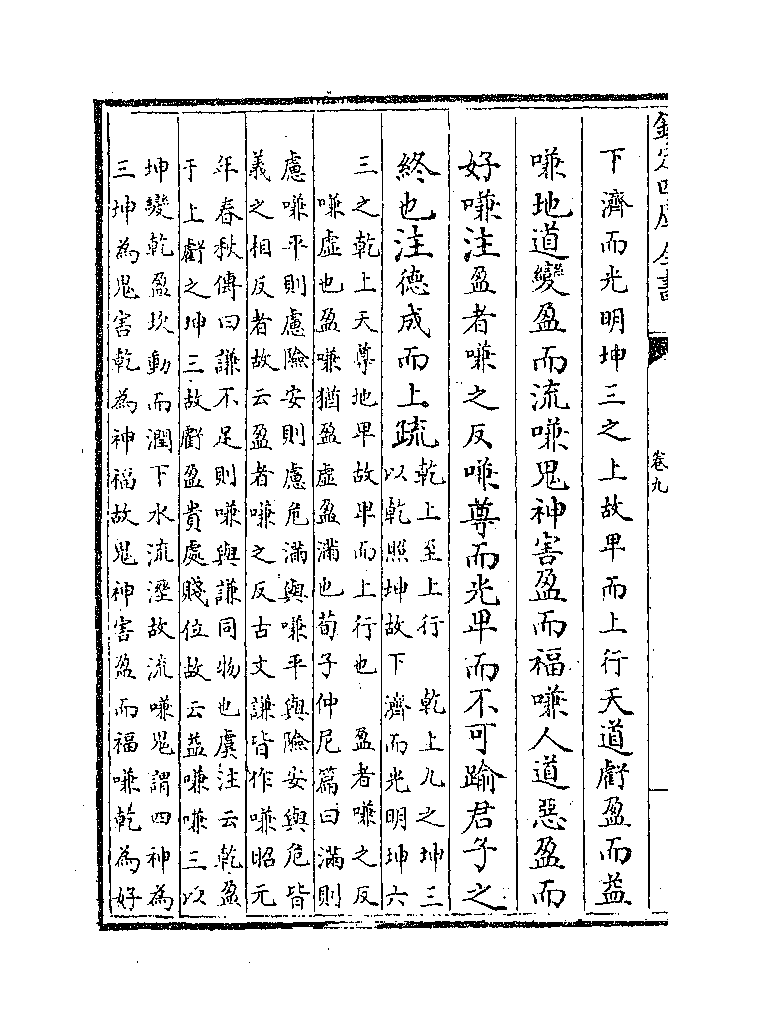 欽定四庫全書
卷九
下濟而光明坤三之上故卑而上行天道虧盈而益
嗛地道變盈而流嗛鬼神害盈而福嗛人道惡盈而
好嗛注盈者嗛之反嗛尊而光卑而不可踰君子之
終也注德成而上疏
乾上至上行　乾上九之坤三
以乾照坤故下濟而光明坤六
三之乾上天尊地卑故卑而上行也　盈者嗛之反
嗛虛也盈嗛猶盈虛盈滿也荀子仲尼篇曰滿則
慮嗛平則慮險安則慮危滿與嗛平與險安與危皆
義之相反者故云盈者嗛之反古文謙皆作嗛昭元
年春秋傳曰謙不足則嗛與謙同物也虞注云乾盈
于上虧之坤三故虧盈貴處賤位故云益嗛嗛三以
坤變乾盈坎動而潤下水流溼故流嗛鬼謂四神為
三坤為鬼害乾為神福故鬼神害盈而福嗛乾為好